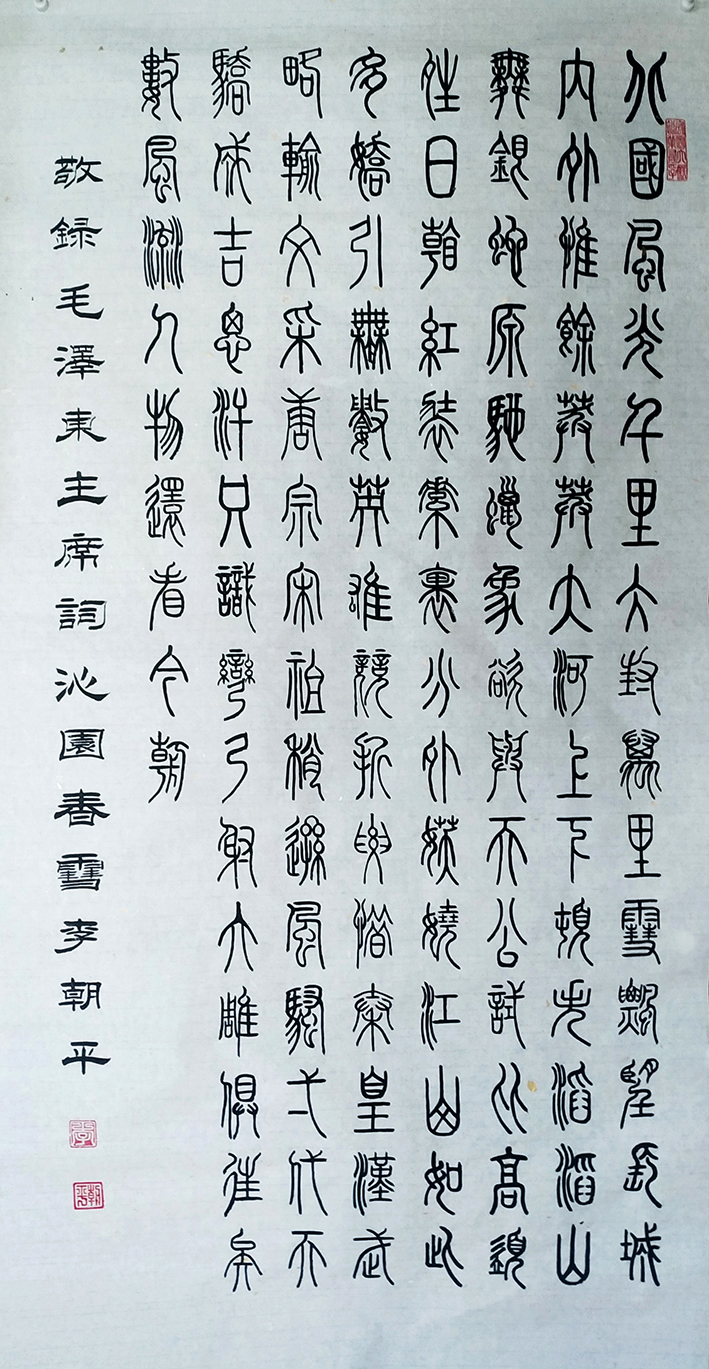 北國風光千里冰封萬里雪飄望長城
內外惟餘莽莽大河上下頓失滔滔山
舞銀蛇原馳蠟象欲與天公試比高須
晴日看紅裝素裹分外妖嬈江山如此
多嬌引無數英雄競折腰惜秦皇漢武
略輸文采唐宗宋祖稍遜風騷弌代天
驕成吉思汗只識彎弓射大雕俱往矣
數風流人物還看今朝
敬録毛澤東主席詞沁園春雪李朝平